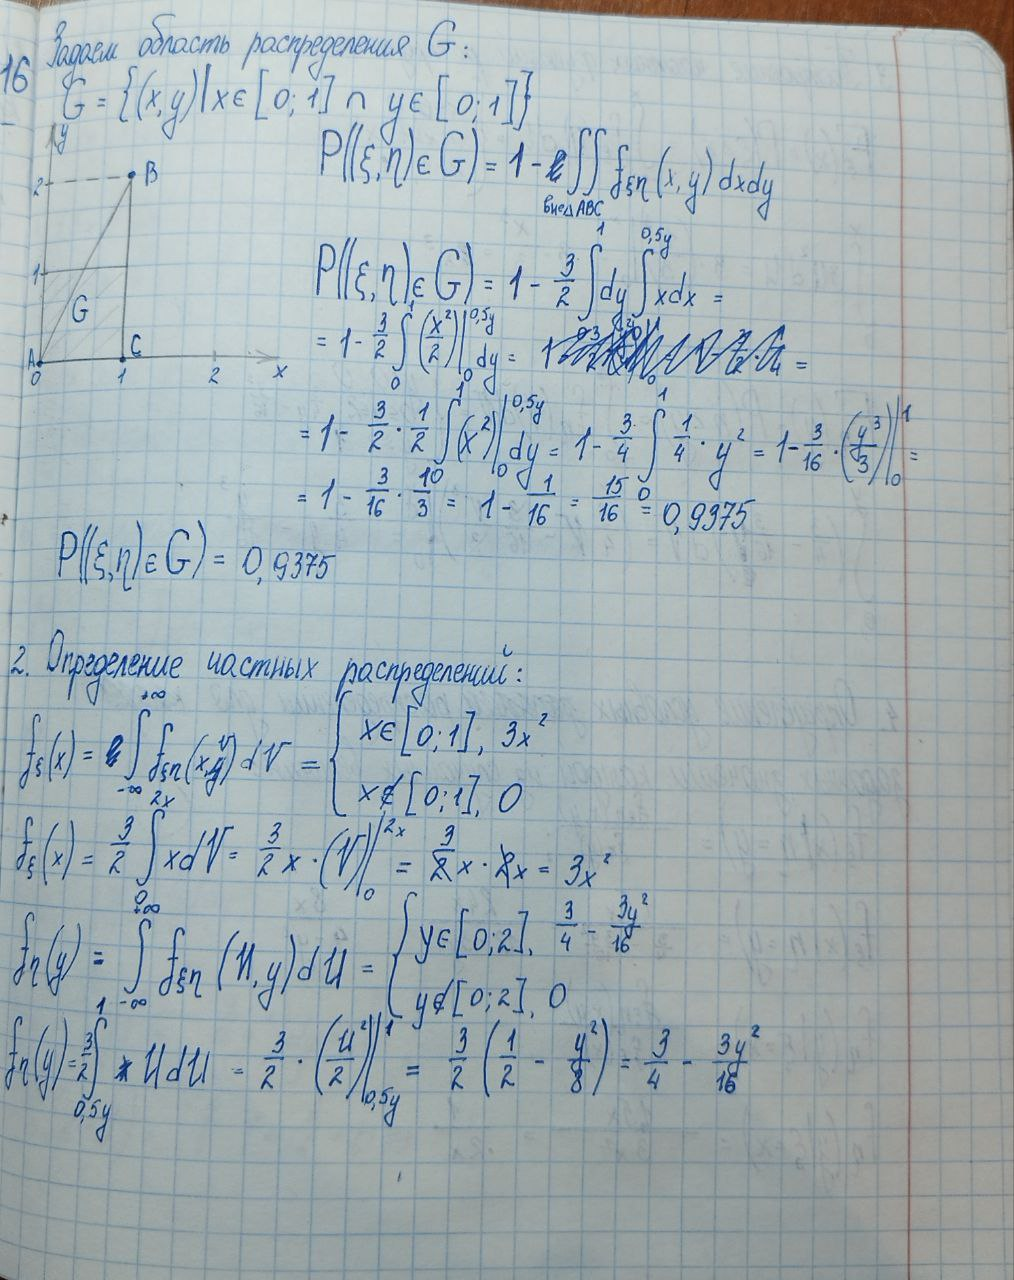 16
Задаем область распределения G:
G = {(x,y)|x∈[0;1] ∩ y∈[0;1]}
y
2
B
1
G
A
C
0 1 2 x
P((ξ,η)∈G) = 1 - ∬ f_ξη(x,y) dxdy
вне ΔABC
P((ξ,η)∈G) = 1 - 3/2 ∫_0^1 dy ∫_0^{0,5y} xdx =
= 1 - 3/2 ∫_0^1 (x²/2)|_0^{0,5y} dy = =
= 1 - 3/2 · 1/2 ∫_0^1 (x²)|_0^{0,5y} dy = 1 - 3/4 ∫_0^1 1/4 · y² = 1 - 3/16 · (y³/3)|_0^1 =
= 1 - 3/16 · 1/3 = 1 - 1/16 = 15/16 = 0,9375
P((ξ,η)∈G) = 0,9375
2. Определение частных распределений:
f_ξ(x) = ∫_{-∞}^{+∞} f_ξη(x,V) dV = { x∈[0;1], 3x²
x∉[0;1], 0
f_ξ(x) = 3/2 ∫_0^{2x} xdV = 3/2 x · (V)|_0^{2x} = 3/2 x · 2x = 3x²
f_η(y) = ∫_{-∞}^{+∞} f_ξη(U,y) dU = { y∈[0;2], 3/4 - 3y²/16
y∉[0;2], 0
f_η(y) = 3/2 ∫_{0,5y}^1 UdU = 3/2 · (U²/2)|_{0,5y}^1 = 3/2 (1/2 - y²/8) = 3/4 - 3y²/16